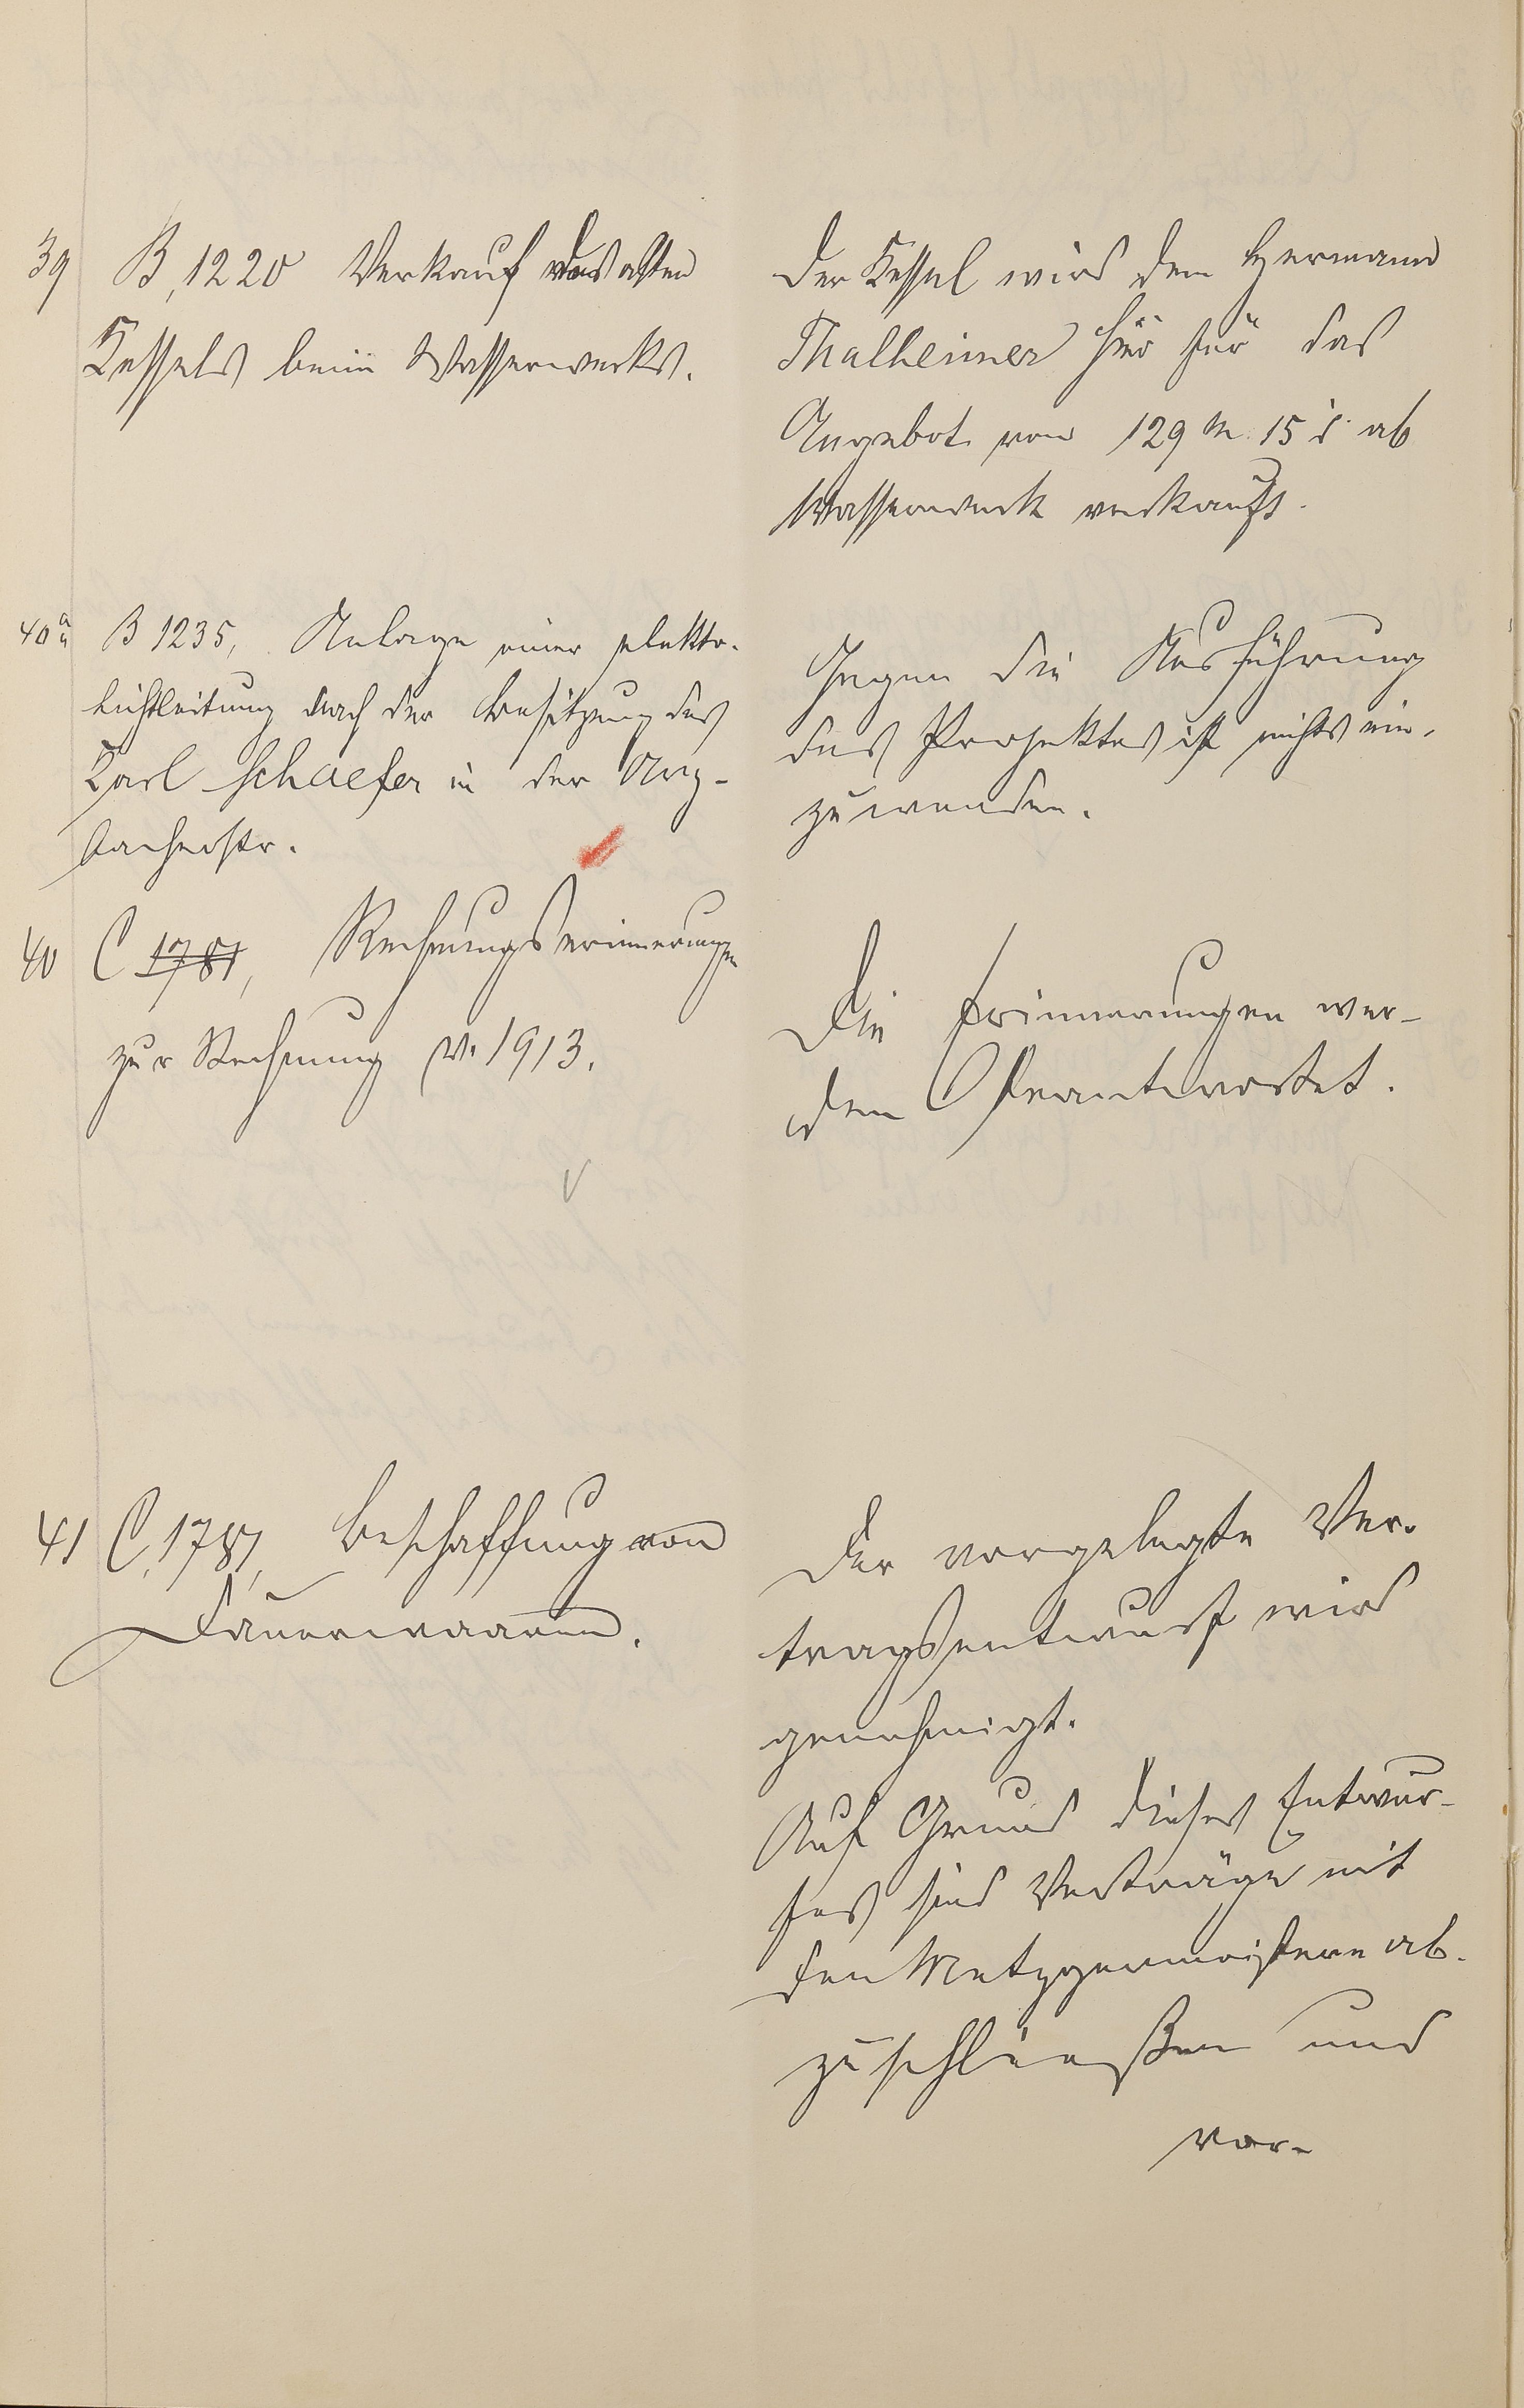 39 B, 1220 Verkauf des alten
Kessels beim Wasserwerks.
Der Kessel wird dem Hermann
Thalheimer hier für das
Angebot von 129 M 15 d ab
Wasserwerk verkauft.
40a B 1235, Anlage einer elektr.
Lichtleitung nach der Besitzung des
Karl Schaefer in der
bacherstr.
Gegen die Ausführung
des Projektes ist nichts ein-
zuwenden.
40 C 1781, Rechnungserinnerungen
zur Rechnung v. 1913.
Die Erinnerungen wer-
den beantwortet.
41 C, 1787, Beschaffung von
Dauerwaaren.
Der vorgelegte Ver-
tragsentwurf wird
genehmigt.
Auf Grund dieses Entwur-
fes sind Verträge mit
den Metzgermeistern ab-
zuschließen und
vor-